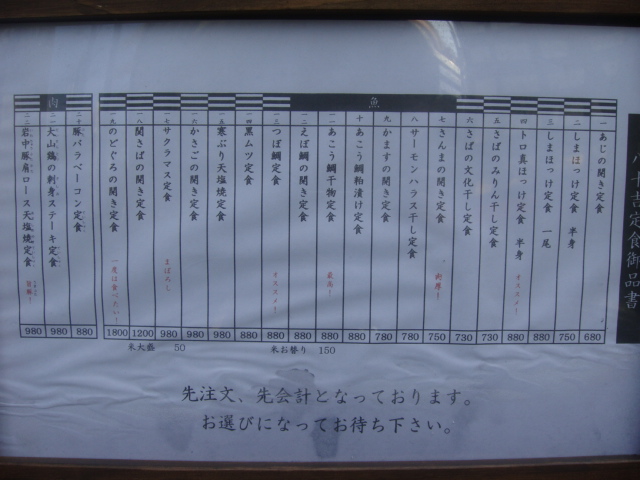 吉定食御品書
魚
一 あじの開き定食 680
二 しまほっけ定食 半身 750
三 しまほっけ定食 一尾 880
四 トロ真ほっけ定食 半身 オススメ! 880
五 さばのみりん干し定食 730
六 さばの文化干し定食 730
七 さんまの開き定食 肉厚! 750
八 サーモンハラス干し定食 780
九 かますの開き定食 780
十 あこう鯛粕漬け定食 880
十一 あこう鯛干物定食 最高! 880
十二 えぼ鯛の開き定食 880
十三 つぼ鯛定食 オススメ! 880
十四 黒ムツ定食 880
十五 寒ぶり天塩焼定食 980
十六 かさごの開き定食 980
十七 サクラマス定食 まぼろし 980
十八 関さばの開き定食 1200
十九 のどぐろの開き定食 一度は食べたい! 1800
肉
二十 豚バラベーコン定食 880
二一 大山鶏の刺身ステーキ定食 980
二二 岩中豚肩ロース天塩焼定食 旨豚! 980
米お替り 150
米大盛 50
先注文、先会計となっております。
お選びになってお待ち下さい。